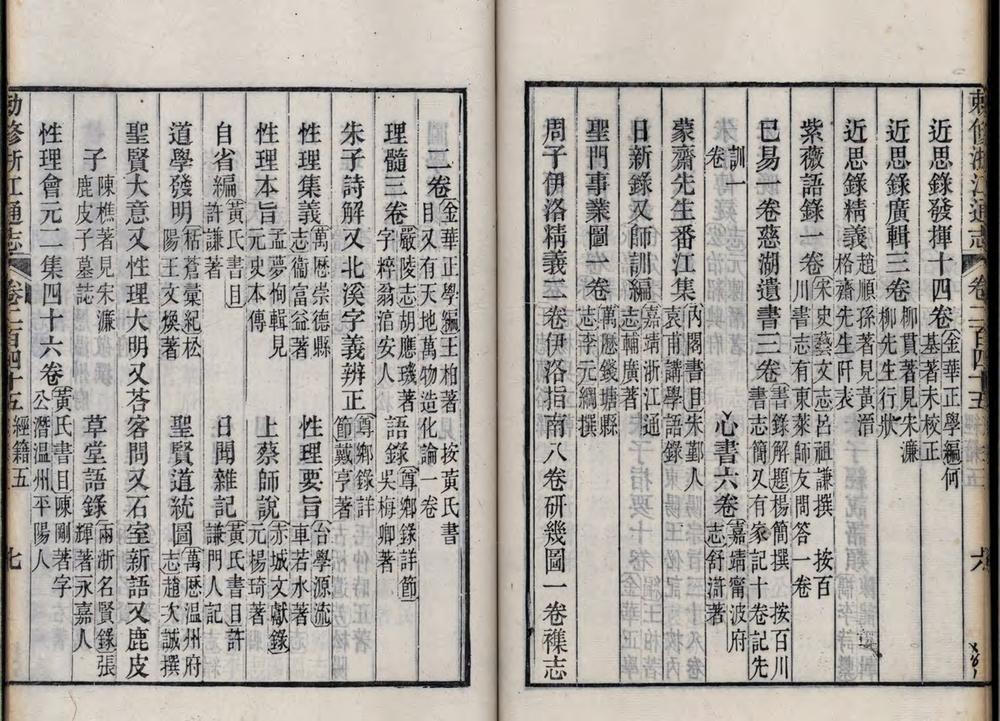 敕修浙江通志　卷二百四十五　六
近思錄發揮十四卷金華正學編何基著未校正
近思錄廣輯三卷柳貫著見宋濂柳先生行狀
近思錄精義趙順孫著見黃溍格齋先生阡表
紫薇語錄一卷宋史藝文志呂祖謙撰　按百川書志有東萊師友問答一卷
已易一卷慈湖遺書三卷書錄解題楊簡撰　按百川書志簡又有家記十卷記先
訓一卷　心書六卷嘉靖甯波府志舒津著
蒙齋先生番江集內閣書目朱鄞人袁甫講學語錄
日新錄又師訓編嘉靖浙江通志輔廣著
聖門事業圖一卷萬歷錢塘縣志李元綱撰
周子伊洛精義三卷伊洛指南八卷研幾圖一卷襍志
二卷金華正學編王柏著　按黃氏書目又有天地萬物造化論一卷
理髓三卷嚴陵志胡應璣著字粹翁淳安人　語錄尊鄉錄詳節吳梅卿著
朱子詩解又北溪字義辨正尊鄉錄詳節戴亨著
性理集義萬歷崇德縣志衞富益著　性理要旨台學源流車若水著
性理本旨孟夢恂輯見元史本傳　上蔡師說赤城文獻錄元楊琦著
自省編黃氏書目許謙著　日聞雜記黃氏書目許謙門人記
道學發明栝蒼彙紀松陽王文煥著　聖賢道統圖萬歷温州府志趙次誠撰
聖賢大意又性理大明又荅客問又石室新語又鹿皮
子陳樵著見宋濂鹿皮子墓誌　草堂語錄兩浙名賢錄張輝著永嘉人
性理會元二集四十六卷黃氏書目陳剛著字公潛温州平陽人
敕修浙江通志　卷二百四十五　經籍五　七